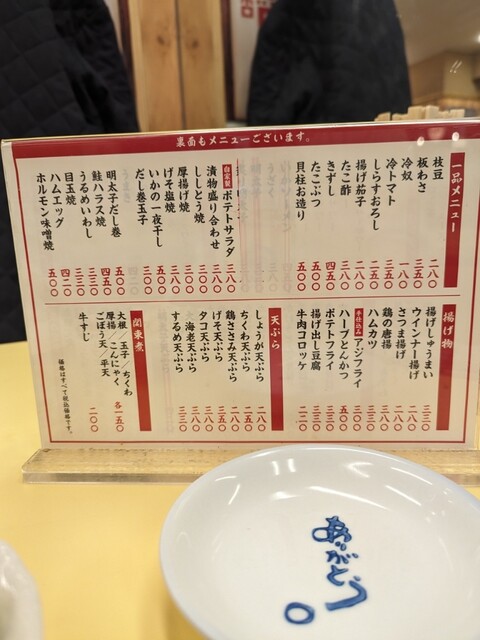 裏面もメニューございます。
一品メニュー
枝豆 二八〇
板わさ 四五〇
冷奴 一八〇
冷トマト
しらすおろし
揚げ茄子
たこ酢 三八〇
きずし 四五〇
たこぶつ 五〇〇
貝柱お造り 五〇〇
自家製 ポテトサラダ 三八〇
漬物盛り合わせ
ししとう焼
厚揚げ焼
げそ塩焼 三八〇
いかの一夜干し
だし巻玉子 三〇〇
明太子だし巻 五〇〇
鮭ハラス焼 四五〇
うるめいわし 三三〇
目玉焼
ハムエッグ 四二〇
ホルモン味噌焼 五〇〇
揚げ物
揚げしゅうまい
ウインナー揚げ
さつま揚げ
鶏の唐揚
ハムカツ
手仕込み アジフライ
ハーブとんかつ 五〇〇
ポテトフライ
揚げ出し豆腐
牛肉コロッケ
天ぷら
しょうが天ぷら 二八〇
ちくわ天ぷら 二五〇
鶏ささみ天ぷら
げそ天ぷら
タコ天ぷら
海老天ぷら
するめ天ぷら
関東煮
大根／玉子／ちくわ
厚揚／こんにゃく
ごぼう天／平天
各一五〇
牛すじ 二〇〇
価格はすべて税込価格です。
ありがとう